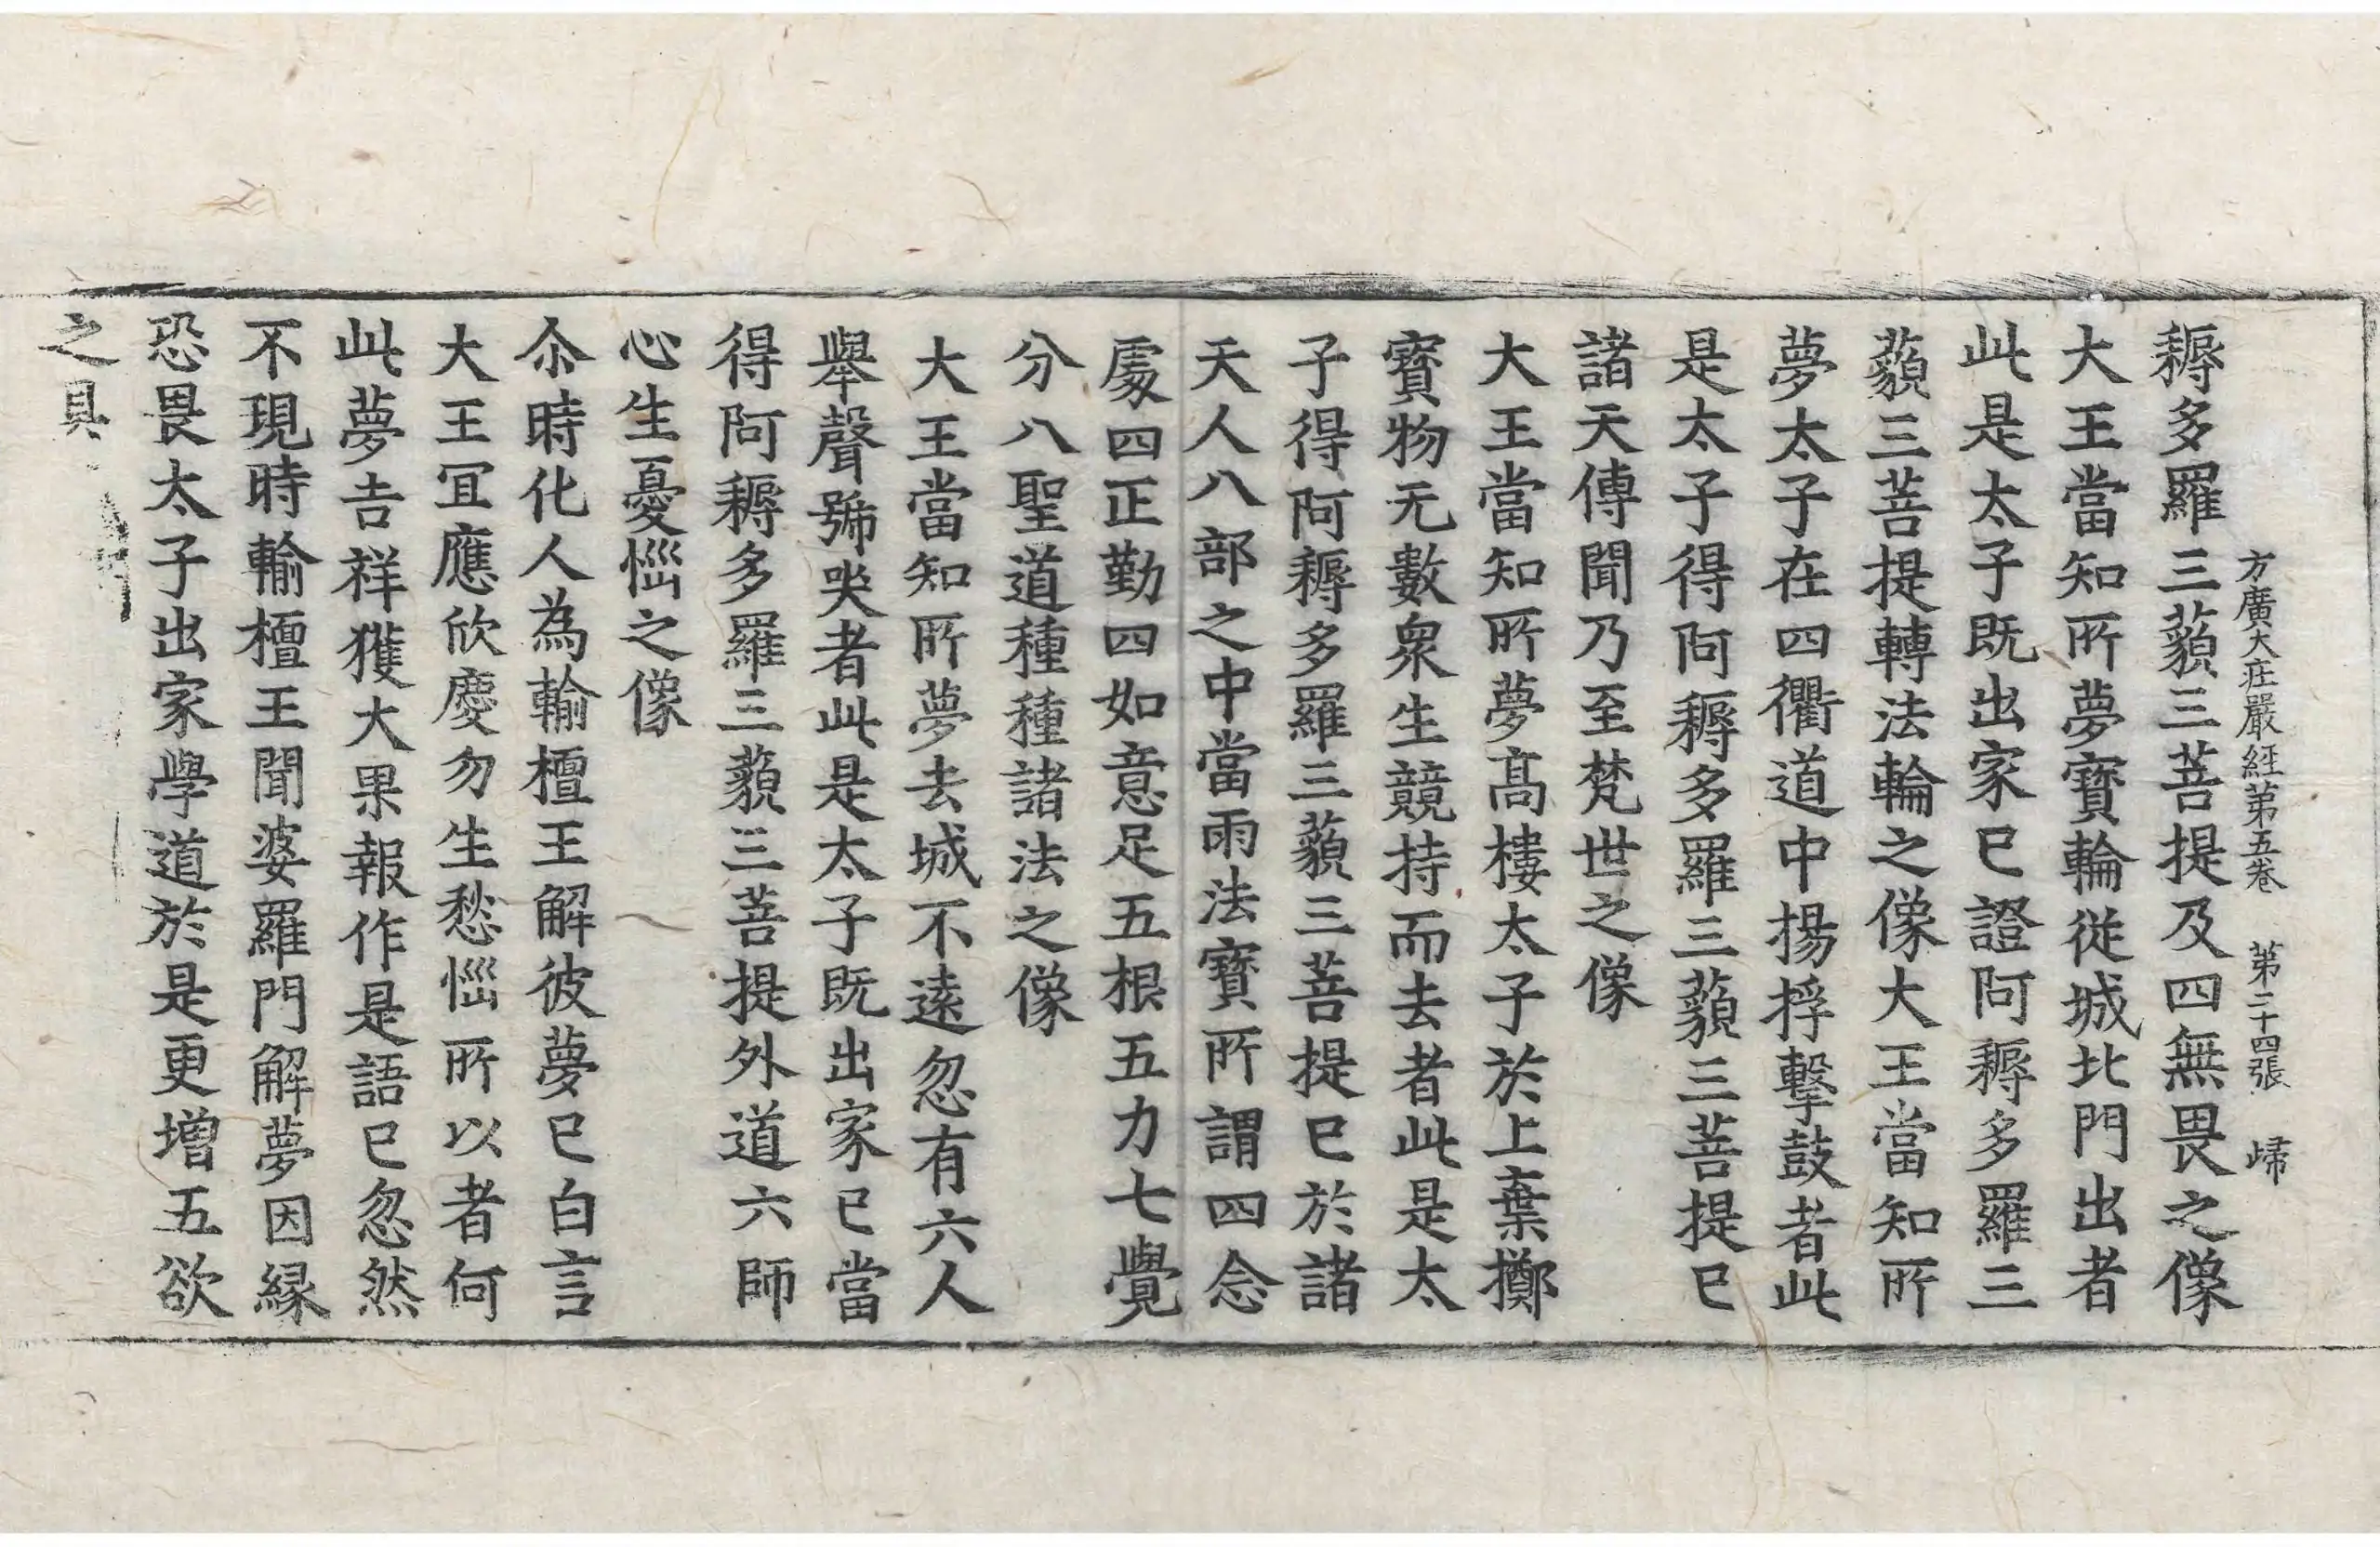 方廣大莊嚴經第五卷 第二十四張 歸
耨多羅三藐三菩提及四無畏之像
大王當知所夢寶輪從城北門出者
此是太子既出家已證阿耨多羅三
藐三菩提轉法輪之像大王當知所
夢太子在四衢道中揚桴擊鼓者此
是太子得阿耨多羅三藐三菩提已
諸天傳聞乃至梵世之像
大王當知所夢髙樓太子於上棄擲
寶物无數衆生競持而去者此是太
子得阿耨多羅三藐三菩提已於諸
天人八部之中當雨法寶所謂四念
處四正勤四如意足五根五力七覺
分八聖道種種諸法之像
大王當知所夢去城不遠忽有六人
舉聲號哭者此是太子既出家已當
得阿耨多羅三藐三菩提外道六師
心生憂惱之像
尒時化人為輸檀王解彼夢已白言
大王冝應欣慶勿生愁惱所以者何
此夢吉祥獲大果報作是語已忽然
不現時輸檀王聞婆羅門解夢因緣
恐畏太子出家學道於是更增五欲
之具